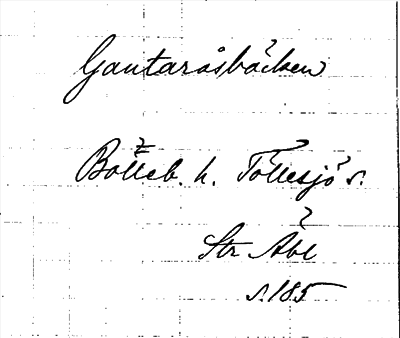 Gantaråsbäcken
Bolleb. h. Töllesjö s.
Str Åbl
s. 185